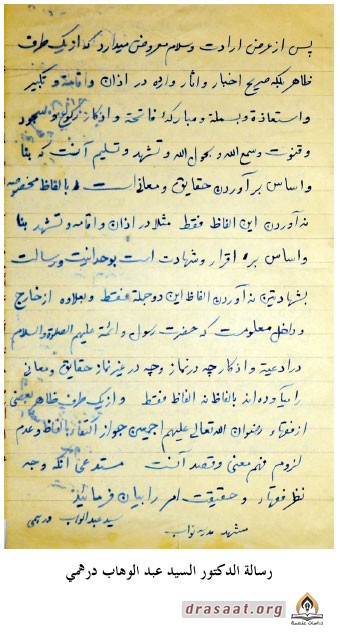 پس از عرض ارادت و سلام معروض میدارد که از یک طرف
ظاهر بلکه صریح اخبار و آثار وارده در اذان و اقامة و تکبیر
و استعاذة و بسملة و مبارکهٔ فاتحة و اذکار رکوع و سجود
و قنوت و سمع الله و بحول الله و تشهد و تسلیم آنست که بنا
و اساس بر آوردن حقایق و معانی است با الفاظ مخصوصه
نه آوردن این الفاظ فقط مثلا در اذان و اقامه و تشهد بنا
و اساس بر اقرار و شهادت است بوحدانیت و رسالت
بشهادتین نه آوردن الفاظ این دو جمله فقط و بعلاوه از خارج
و داخل معلومست که حضرت رسول و ائمة علیهم الصلوة و السلام
در ادعیة و اذکار چه در نماز و چه در غیر نماز حقایق و معانی
را میآوده اند بالفاظ نه الفاظ فقط و از یک طرف ظاهر بعضی
از فقهاء رضوان الله تعالی علیهم اجمعین جواز اکتفاء بالفاظ و عدم
لزوم فهم معنی و قصد آنست مستدعی آنکه وجه
نظر فقهاء و حقیقت امر را بیان فرمائید
سید عبد الوهاب درهمی
مشهد مدرسه نواب
رسالة الدكتور السيد عبد الوهاب درهمي
دراسات علمية
drasaat.org